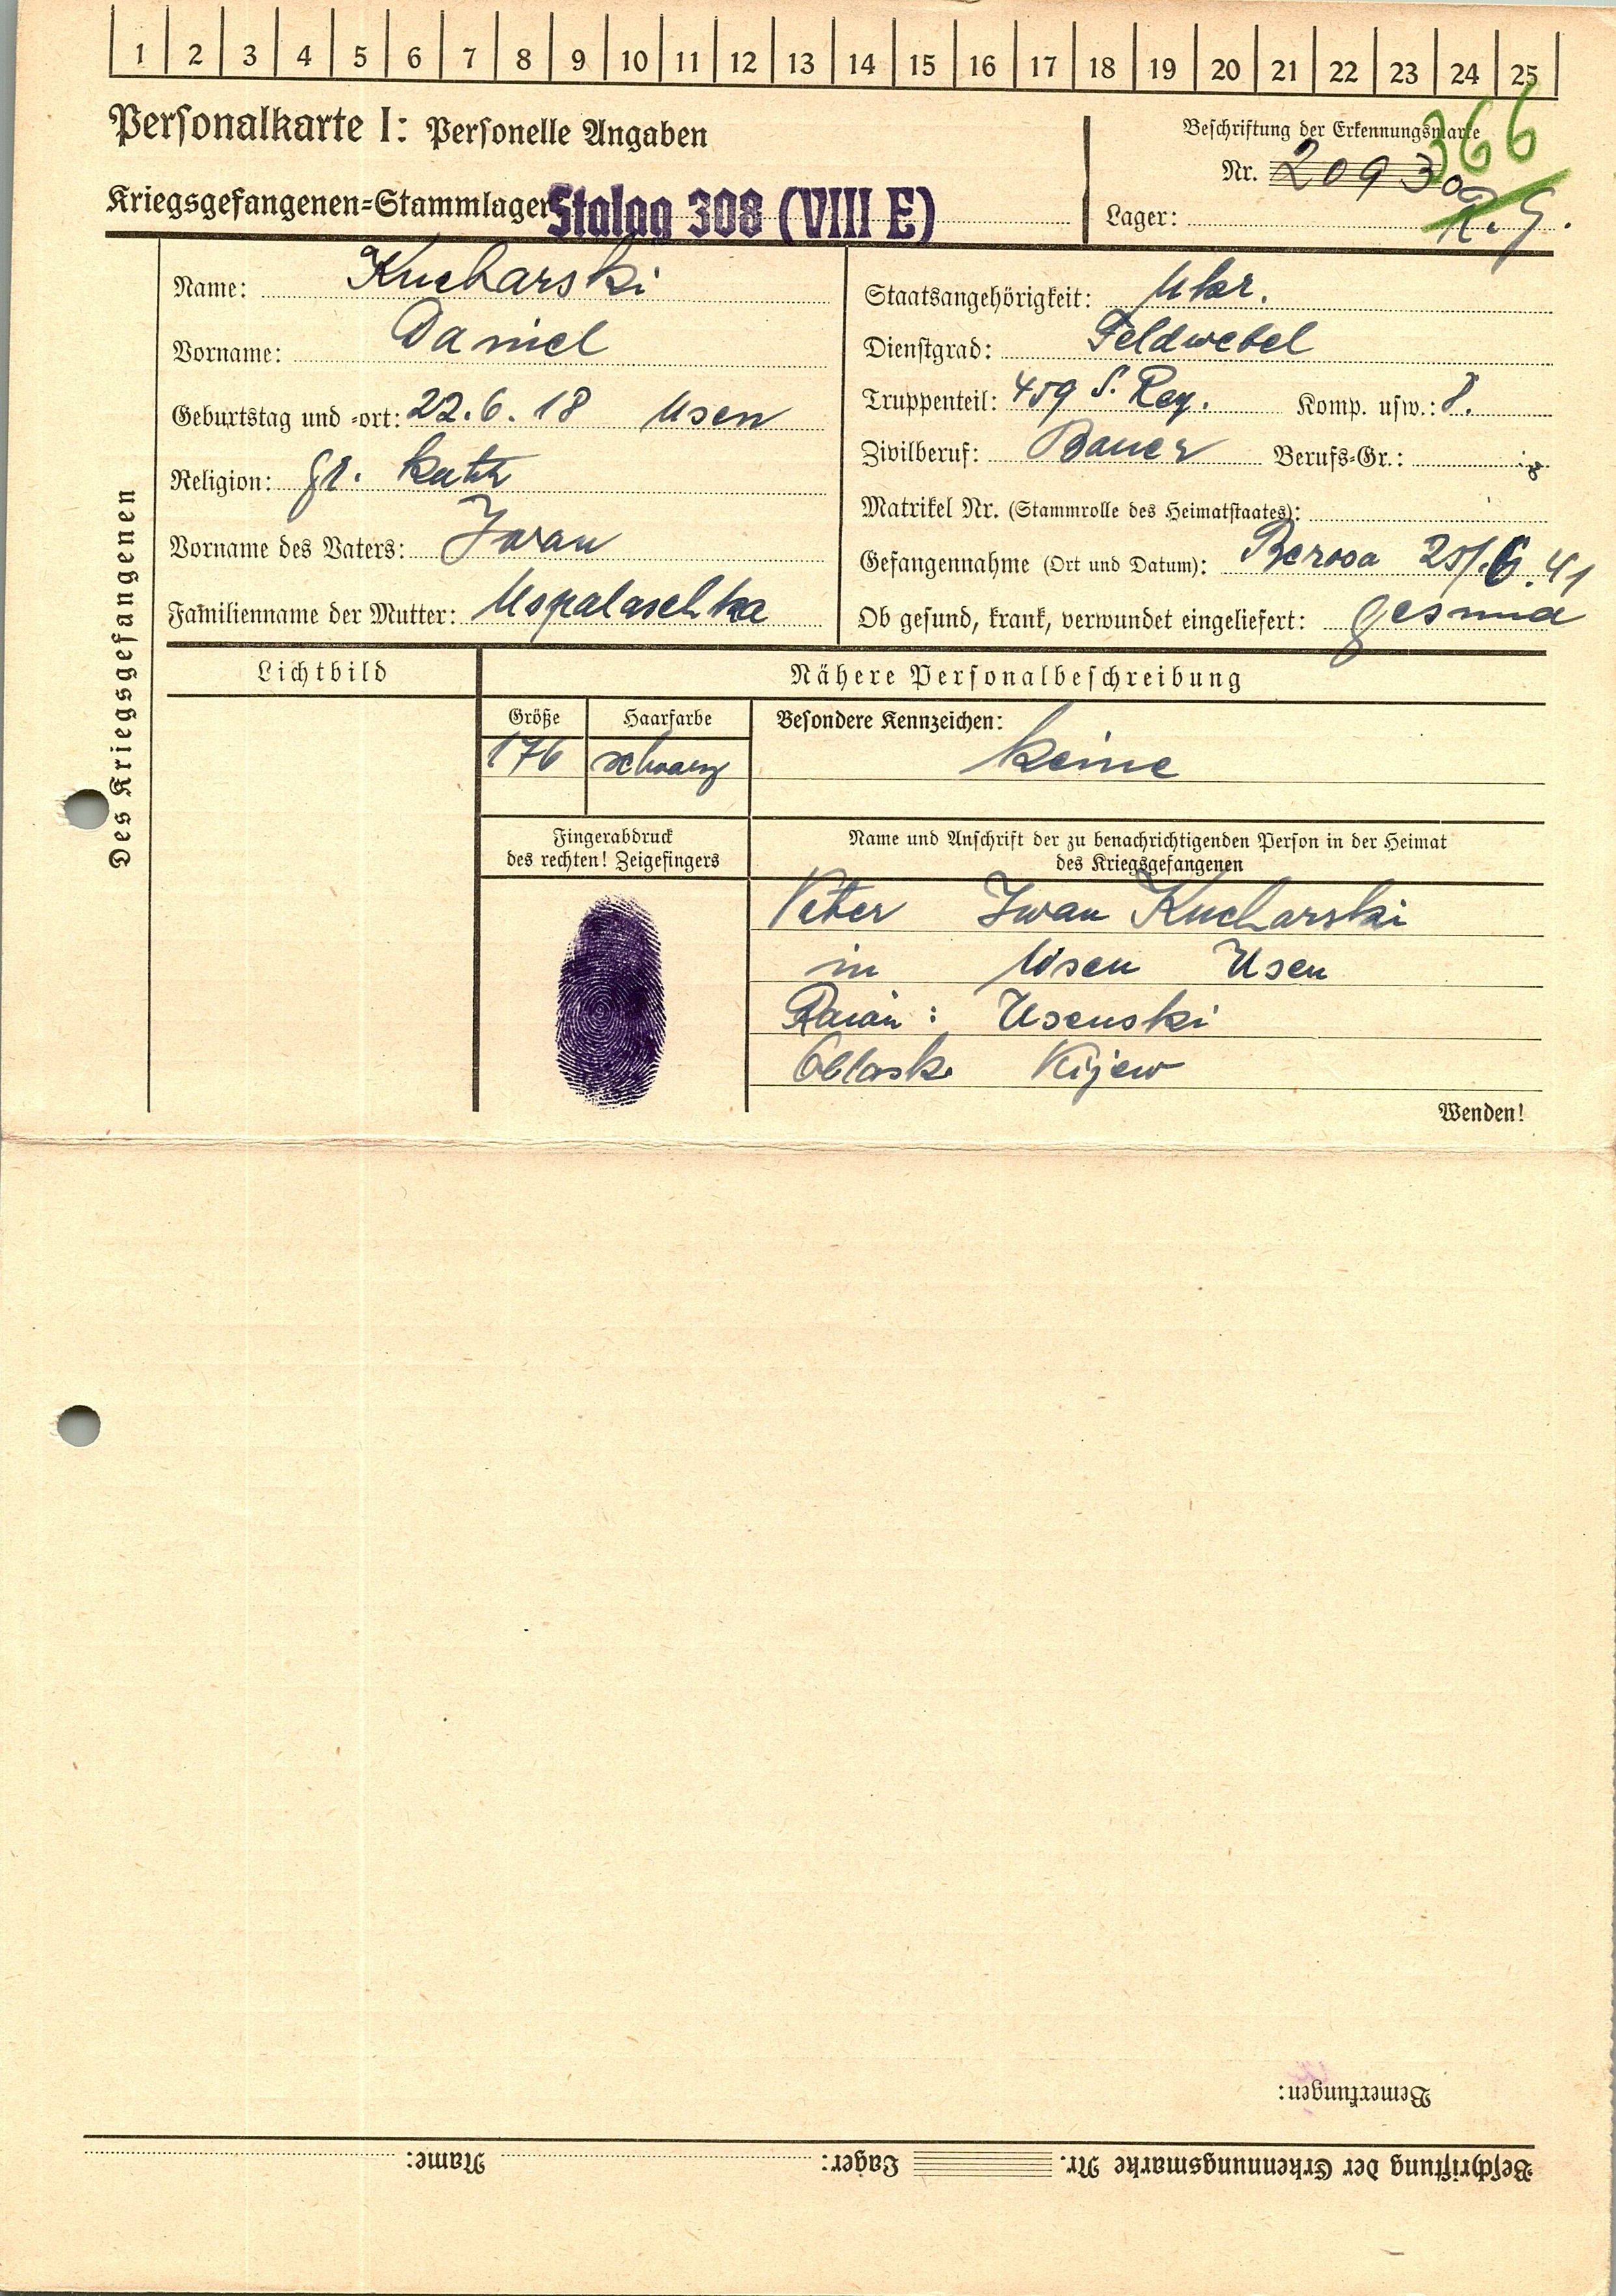 1 2 3 4 5 6 7 8 9 10 11 12 13 14 15 16 17 18 19 20 21 22 23 24 25
Personalkarte I: Personelle Angaben
Beschriftung der Erkennungsmarke
366
Nr. 20930
Kriegsgefangenen=Stammlager: Stalag 308 (VIII E)
Lager: R. G.
Des Kriegsgefangenen
Name: Kucharski
Vorname: Daniel
Geburtstag und =ort: 22.6.18 Usen
Religion: gr. kath
Vorname des Vaters: Iwan
Familienname der Mutter:
Staatsangehörigkeit: Ukr.
Dienstgrad: Feldwebel
Truppenteil: 459 S. Reg. Komp. usw.: 8.
Zivilberuf: Bauer Berufs=Gr.:
Matrikel Nr. (Stammrolle des Heimatstaates):
Gefangennahme (Ort und Datum): Berosa 25/.6.41
Ob gesund, krank, verwundet eingeliefert: gesund
Lichtbild
Nähere Personalbeschreibung
Größe
176
Haarfarbe
schwarz
Besondere Kennzeichen:
keine
Fingerabdruck
des rechten! Zeigefingers
Name und Anschrift der zu benachrichtigenden Person in der Heimat
des Kriegsgefangenen
Vater Iwan Kucharski
in Usen Usen
Raion: Usenski
Oblask Kijew
Wenden!
Bemerkungen:
Beschriftung der Erkennungsmarke Nr. Lager: Name: